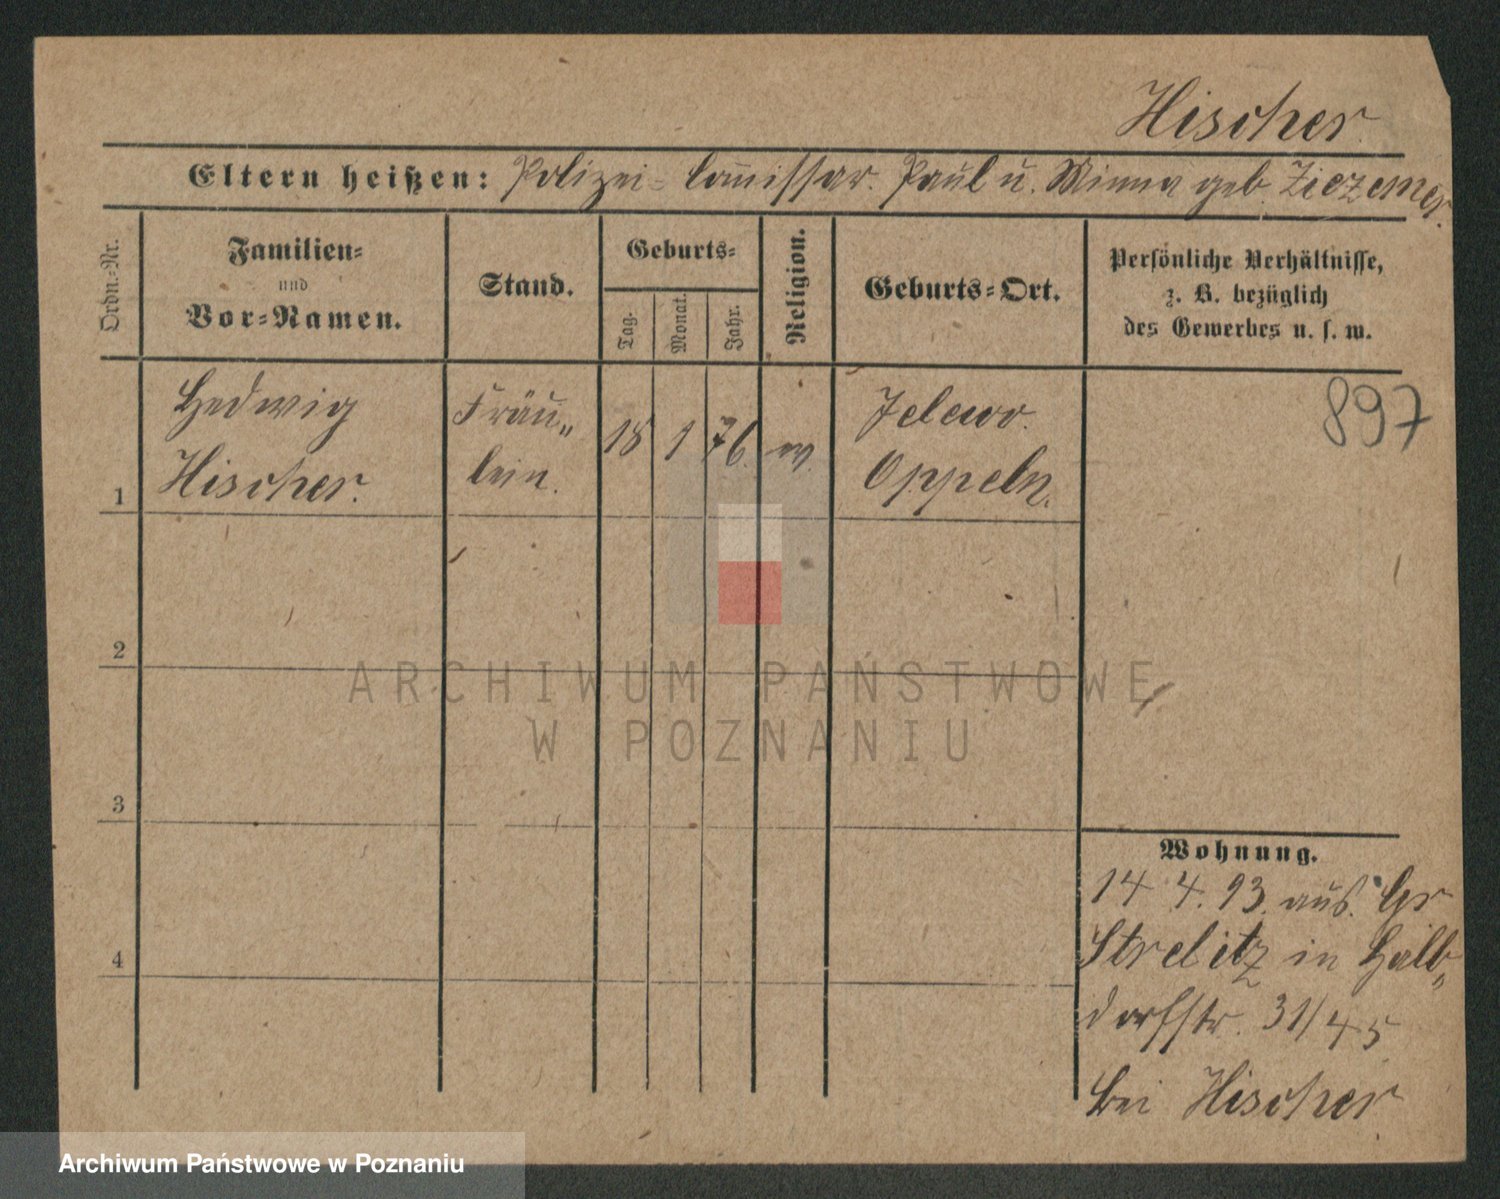 Hischer.
Eltern heißen: Polizei-Com̄issar. Paul u. Minna geb. Ziezemer.
Ordn.-Nr.
Familien-
und
Vor-Namen.
Stand.
Geburts-
Tag.
Monat.
Jahr.
Religion.
Geburts-Ort.
Persönliche Verhältnisse,
z. B. bezüglich
des Gewerbes u. s. w.
897
Hedwig
Hischer.
Fräu„
lein.
18
1
76.
Oppeln.
1
2
3
4
ARCHIWUM PAŃSTWOWE
W POZNANIU
Wohnung.
14 4. 93. aus. Gr
Strelitz in Halb„
dorfstr. 31/45
bei Hischer
Archiwum Państwowe w Poznaniu